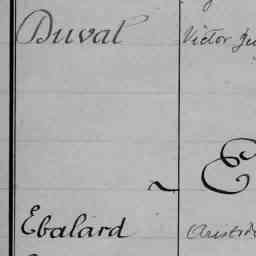 Duval Victor
E
Ebalard